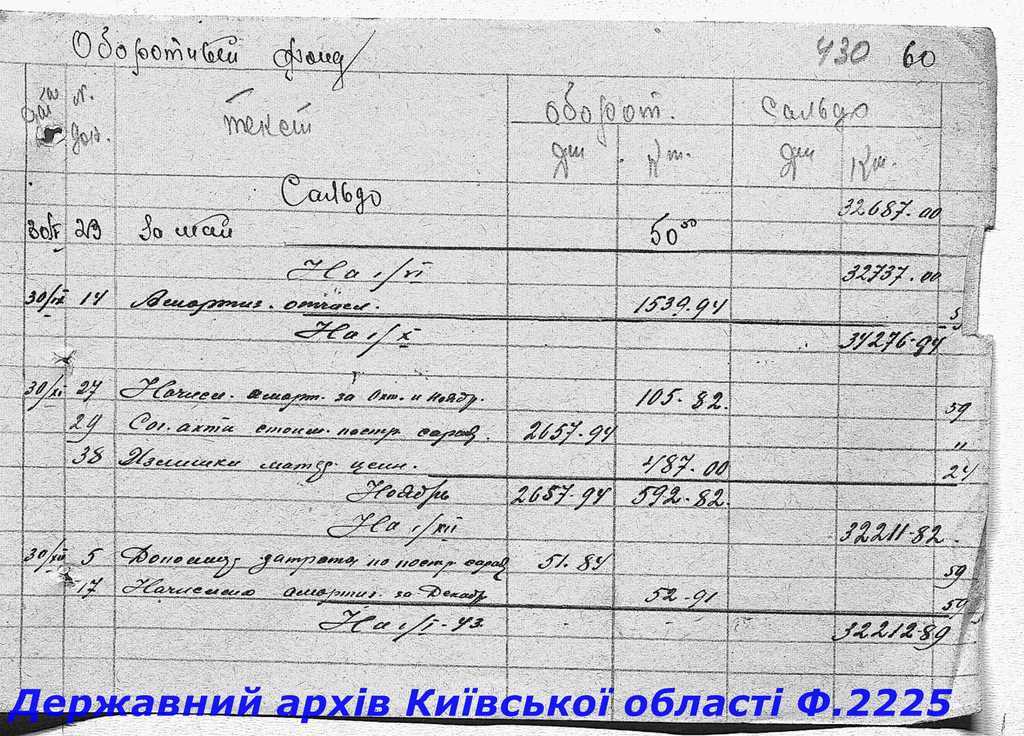 Оборотный фонд 430 60
№ док. текст оборот. сальдо
Дт Кт. Дт Кт.
Сальдо 32687.00
30/V 23 За май 50 00
На 1/VI 32737.00
30/IX 14 Амортиз. отчисл. 1539.94 5
На 1/X 34276-94
30/XI 27 Начисл. аморт. за Окт. и Ноябр. 105-82. 59
29 Сог. акта стоим. постр. сарая. 2657-94 "
38 Излишки матер. ценн. 487-00 24
Ноябрь 2657-94 592-82.
На 1/XII 32211-82.
30/XII 5 затрата по постр. сарая 51.84 59
17 Начислено амортиз. за Декабр 52-91 59
На 1/I-43. 32212-89
Державний архів Київської області Ф.2225